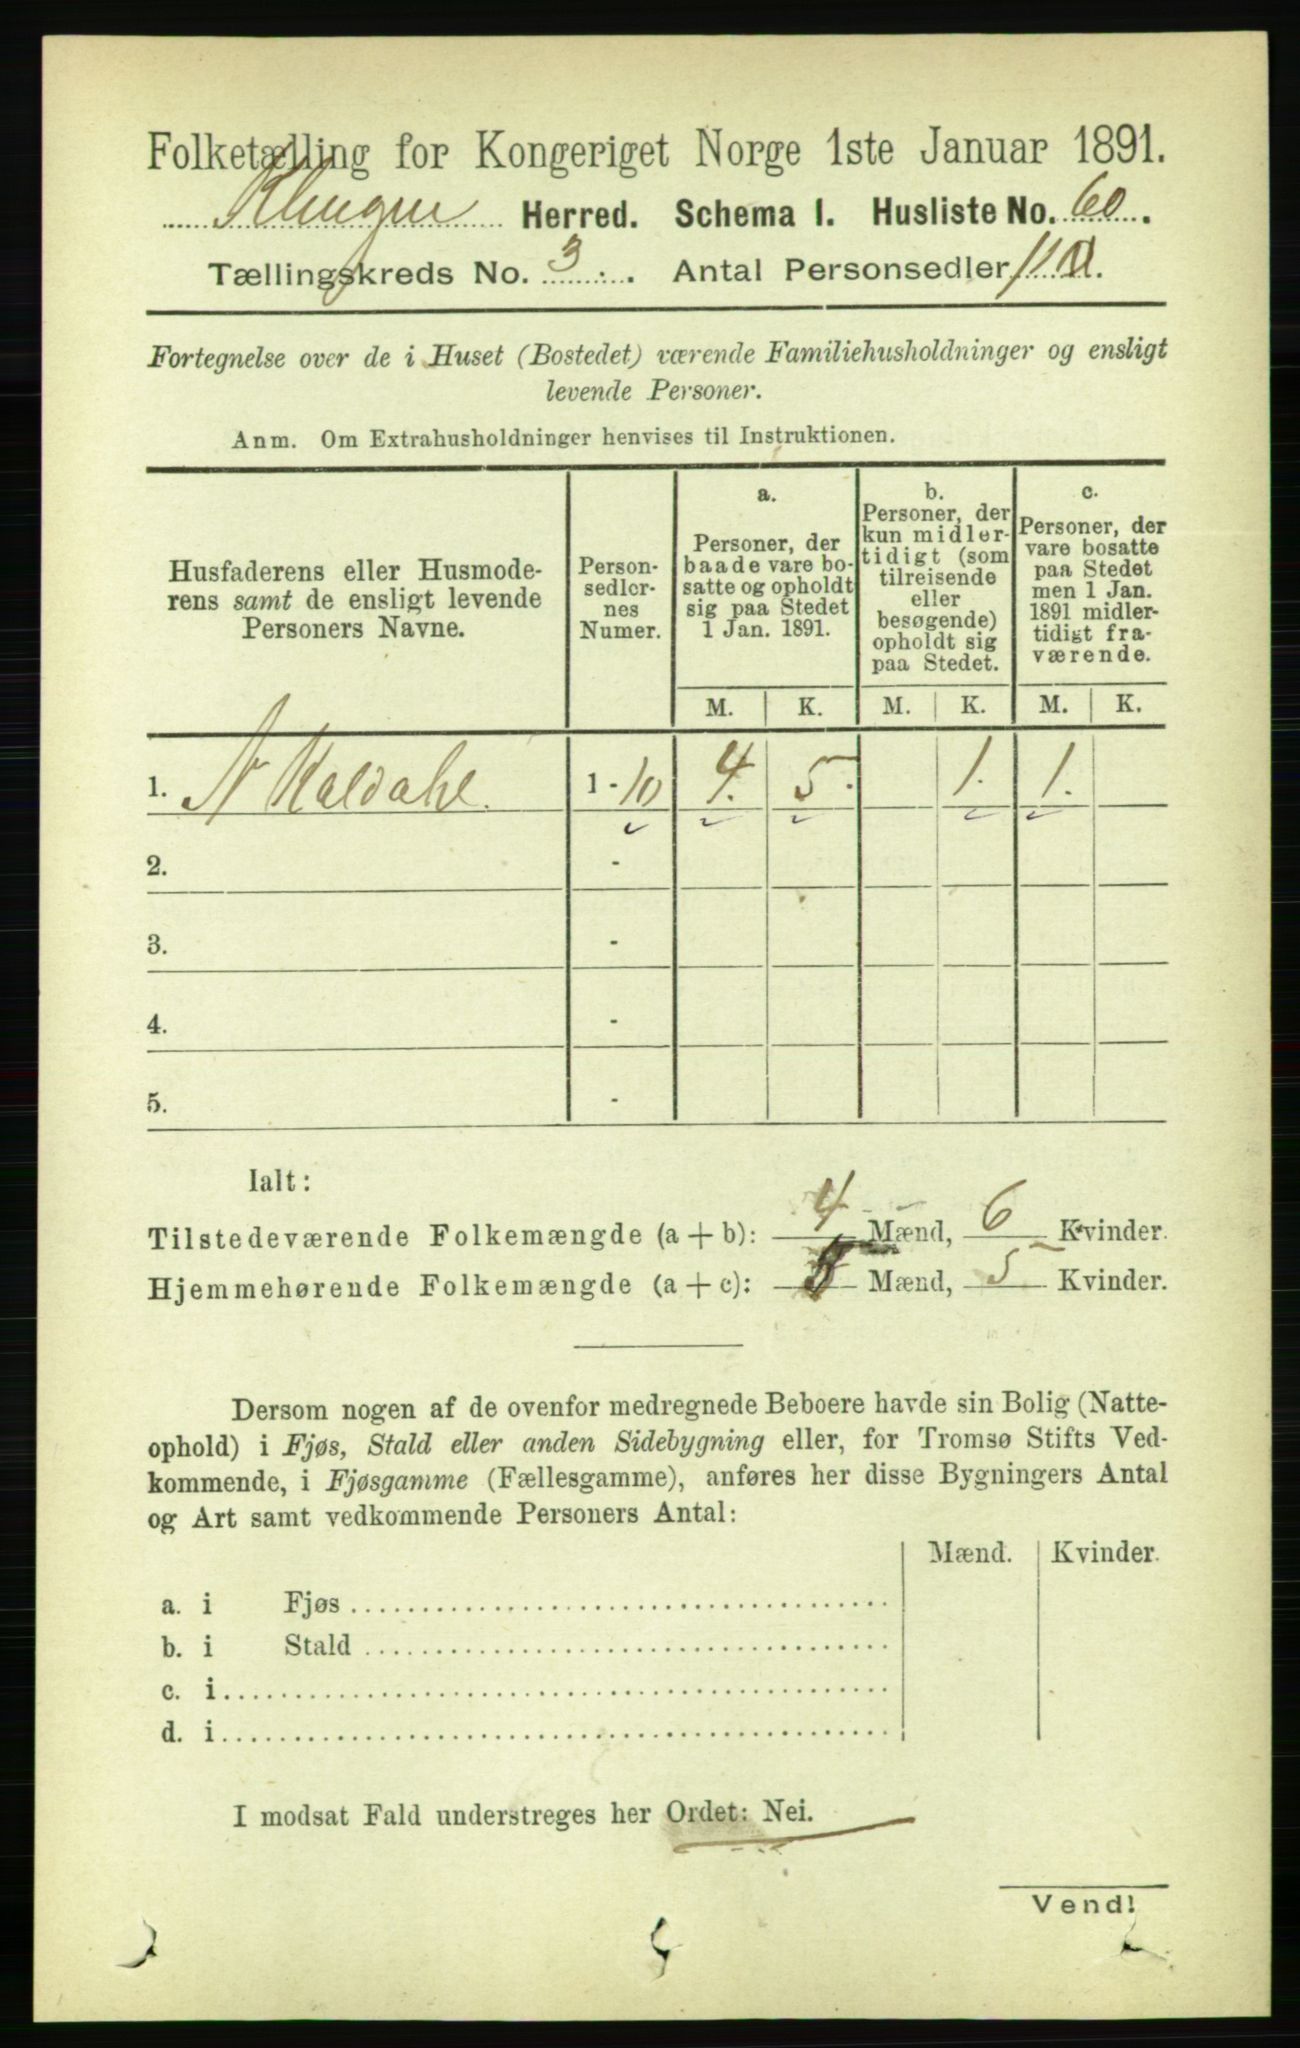 Folketælling for Kongeriget Norge 1ste Januar 1891.
Klingen Herred. Schema I. Husliste No. 60.
Tællingskreds No. 3. Antal Personsedler 11.
Fortegnelse over de i Huset (Bostedet) værende Familiehusholdninger og ensligt
levende Personer.
Anm. Om Extrahusholdninger henvises til Instruktionen.
Husfaderens eller Husmode-
rens samt de ensligt levende
Personers Navne.
Person-
sedler-
nes
Numer.
a.
Personer, der
baade vare bo-
satte og opholdt
sig paa Stedet
1 Jan. 1891.
b.
Personer, der
kun midler-
tidigt (som
tilreisende
eller
besøgende)
opholdt sig
paa Stedet.
c.
Personer, der
vare bosatte
paa Stedet
men 1 Jan.
1891 midler-
tidigt fra-
værende.
M. K. M. K. M. K.
1. N Kaldahl. 1 - 10 4. 5. 1. 1.
2. -
3. -
4. -
5. -
Ialt:
Tilstedeværende Folkemængde (a + b): 4 Mænd, 6 Kvinder.
Hjemmehørende Folkemængde (a + c): 5 Mænd, 5 Kvinder.
Dersom nogen af de ovenfor medregnede Beboere havde sin Bolig (Natte-
ophold) i Fjøs, Stald eller anden Sidebygning eller, for Tromsø Stifts Ved-
kommende, i Fjøsgamme (Fællesgamme), anføres her disse Bygningers Antal
og Art samt vedkommende Personers Antal:
Mænd. Kvinder.
a. i Fjøs
b. i Stald
c. i
d. i
I modsat Fald understreges her Ordet: Nei.
Vend!